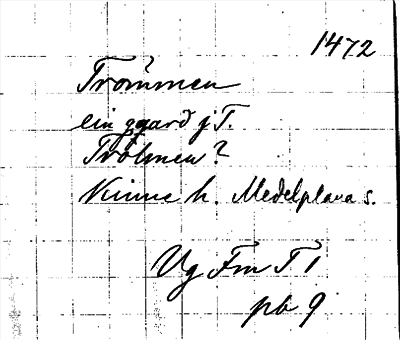 1472
Trommen
ein gaard j T.
Trolmen?
Kinne h. Medelplana s.
Vg Fm T 1
pb 9